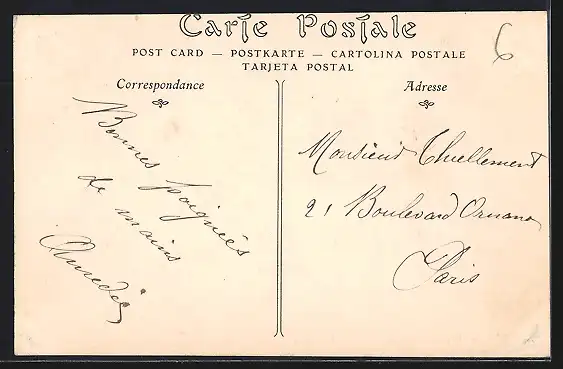 Carte Postale
POST CARD — POSTKARTE — CARTOLINA POSTALE
TARJETA POSTAL
6
Correspondance
Bonnes poignées
de mains
Amédée
Adresse
Monsieur Thuellement
21 Boulevard Ornano
Paris